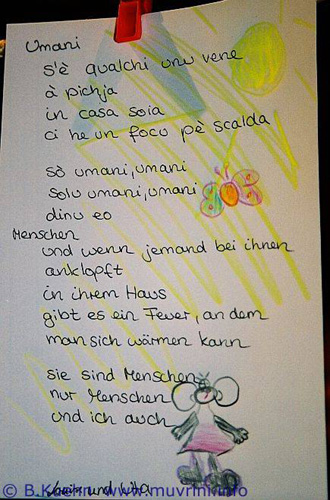 Umani
s'è qualchi unu vene
à pichja
in casa soia
ci he un focu pè scalda
sò umani, umani
solu umani, umani
dinu eo
Menschen
und wenn jemand bei ihnen
anklopft
in ihrem Haus
gibt es ein Feuer, an dem
man sich wärmen kann
sie sind Menschen
nur Menschen
und ich auch
und
© B.Koehn www.muvrini.info